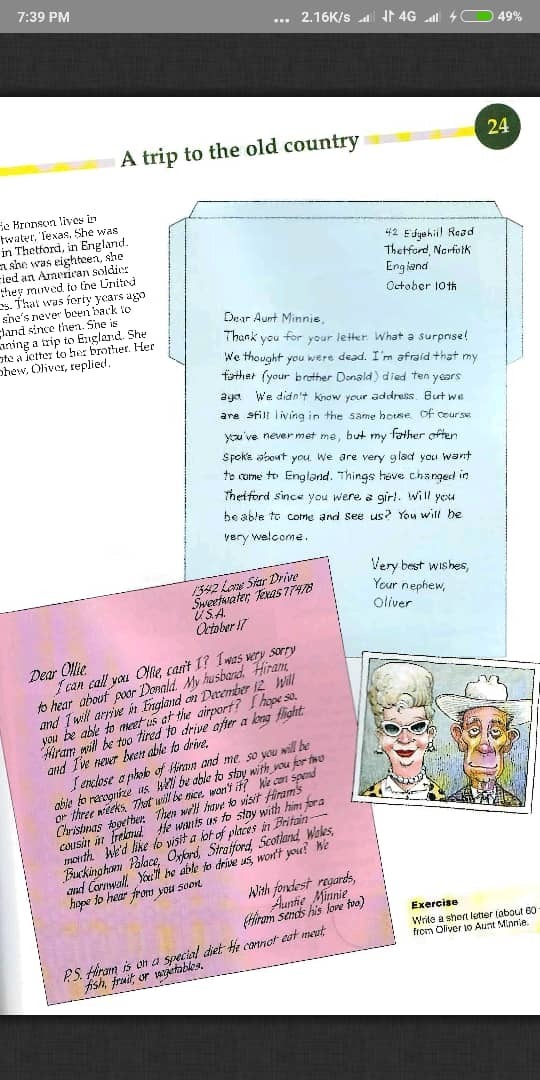 7:39 PM
... 2.16K/s 4G 49%
24
A trip to the old country
Bronson lives in
Texas. She was
in Thetford, in England.
she was eighteen, she
an American soldier
they moved to the United
That was forty years ago
she's never been back to
since then. She is
a trip to England. She
a letter to her brother. Her
Oliver, replied.
42 Edgehill Road
Thetford, Norfolk
England
October 10th
Dear Aunt Minnie,
Thank you for your letter. What a surprise!
We thought you were dead. I'm afraid that my
father (your brother Donald) died ten years
ago. We didn't know your address. But we
are still living in the same house. Of course
you've never met me, but my father often
spoke about you. We are very glad you want
to come to England. Things have changed in
Thetford since you were a girl. Will you
be able to come and see us? You will be
very welcome.
Very best wishes,
Your nephew,
Oliver
1342 Lone Star Drive
Sweetwater, Texas 77478
U.S.A.
October 17
Dear Ollie,
I can call you Ollie, can't I? I was very sorry
to hear about poor Donald. My husband, Hiram,
and I will arrive in England on December 12. Will
you be able to meet us at the airport? I hope so.
Hiram will be too tired to drive after a long flight
and I've never been able to drive.
I enclose a photo of Hiram and me, so you will be
able to recognize us. We'll be able to stay with you for two
or three weeks. That will be nice, won't it? We can spend
Christmas together. Then we'll have to visit Hiram's
cousin in Ireland. He wants us to stay with him for a
month. We'd like to visit a lot of places in Britain—
Buckingham Palace, Oxford, Stratford, Scotland, Wales,
and Cornwall. You'll be able to drive us, won't you? We
hope to hear from you soon.
With fondest regards,
Auntie Minnie
(Hiram sends his love too)
P.S. Hiram is on a special diet. He cannot eat meat,
fish, fruit, or vegetables.
Exercise
Write a short letter (about 60
from Oliver to Aunt Minnie.